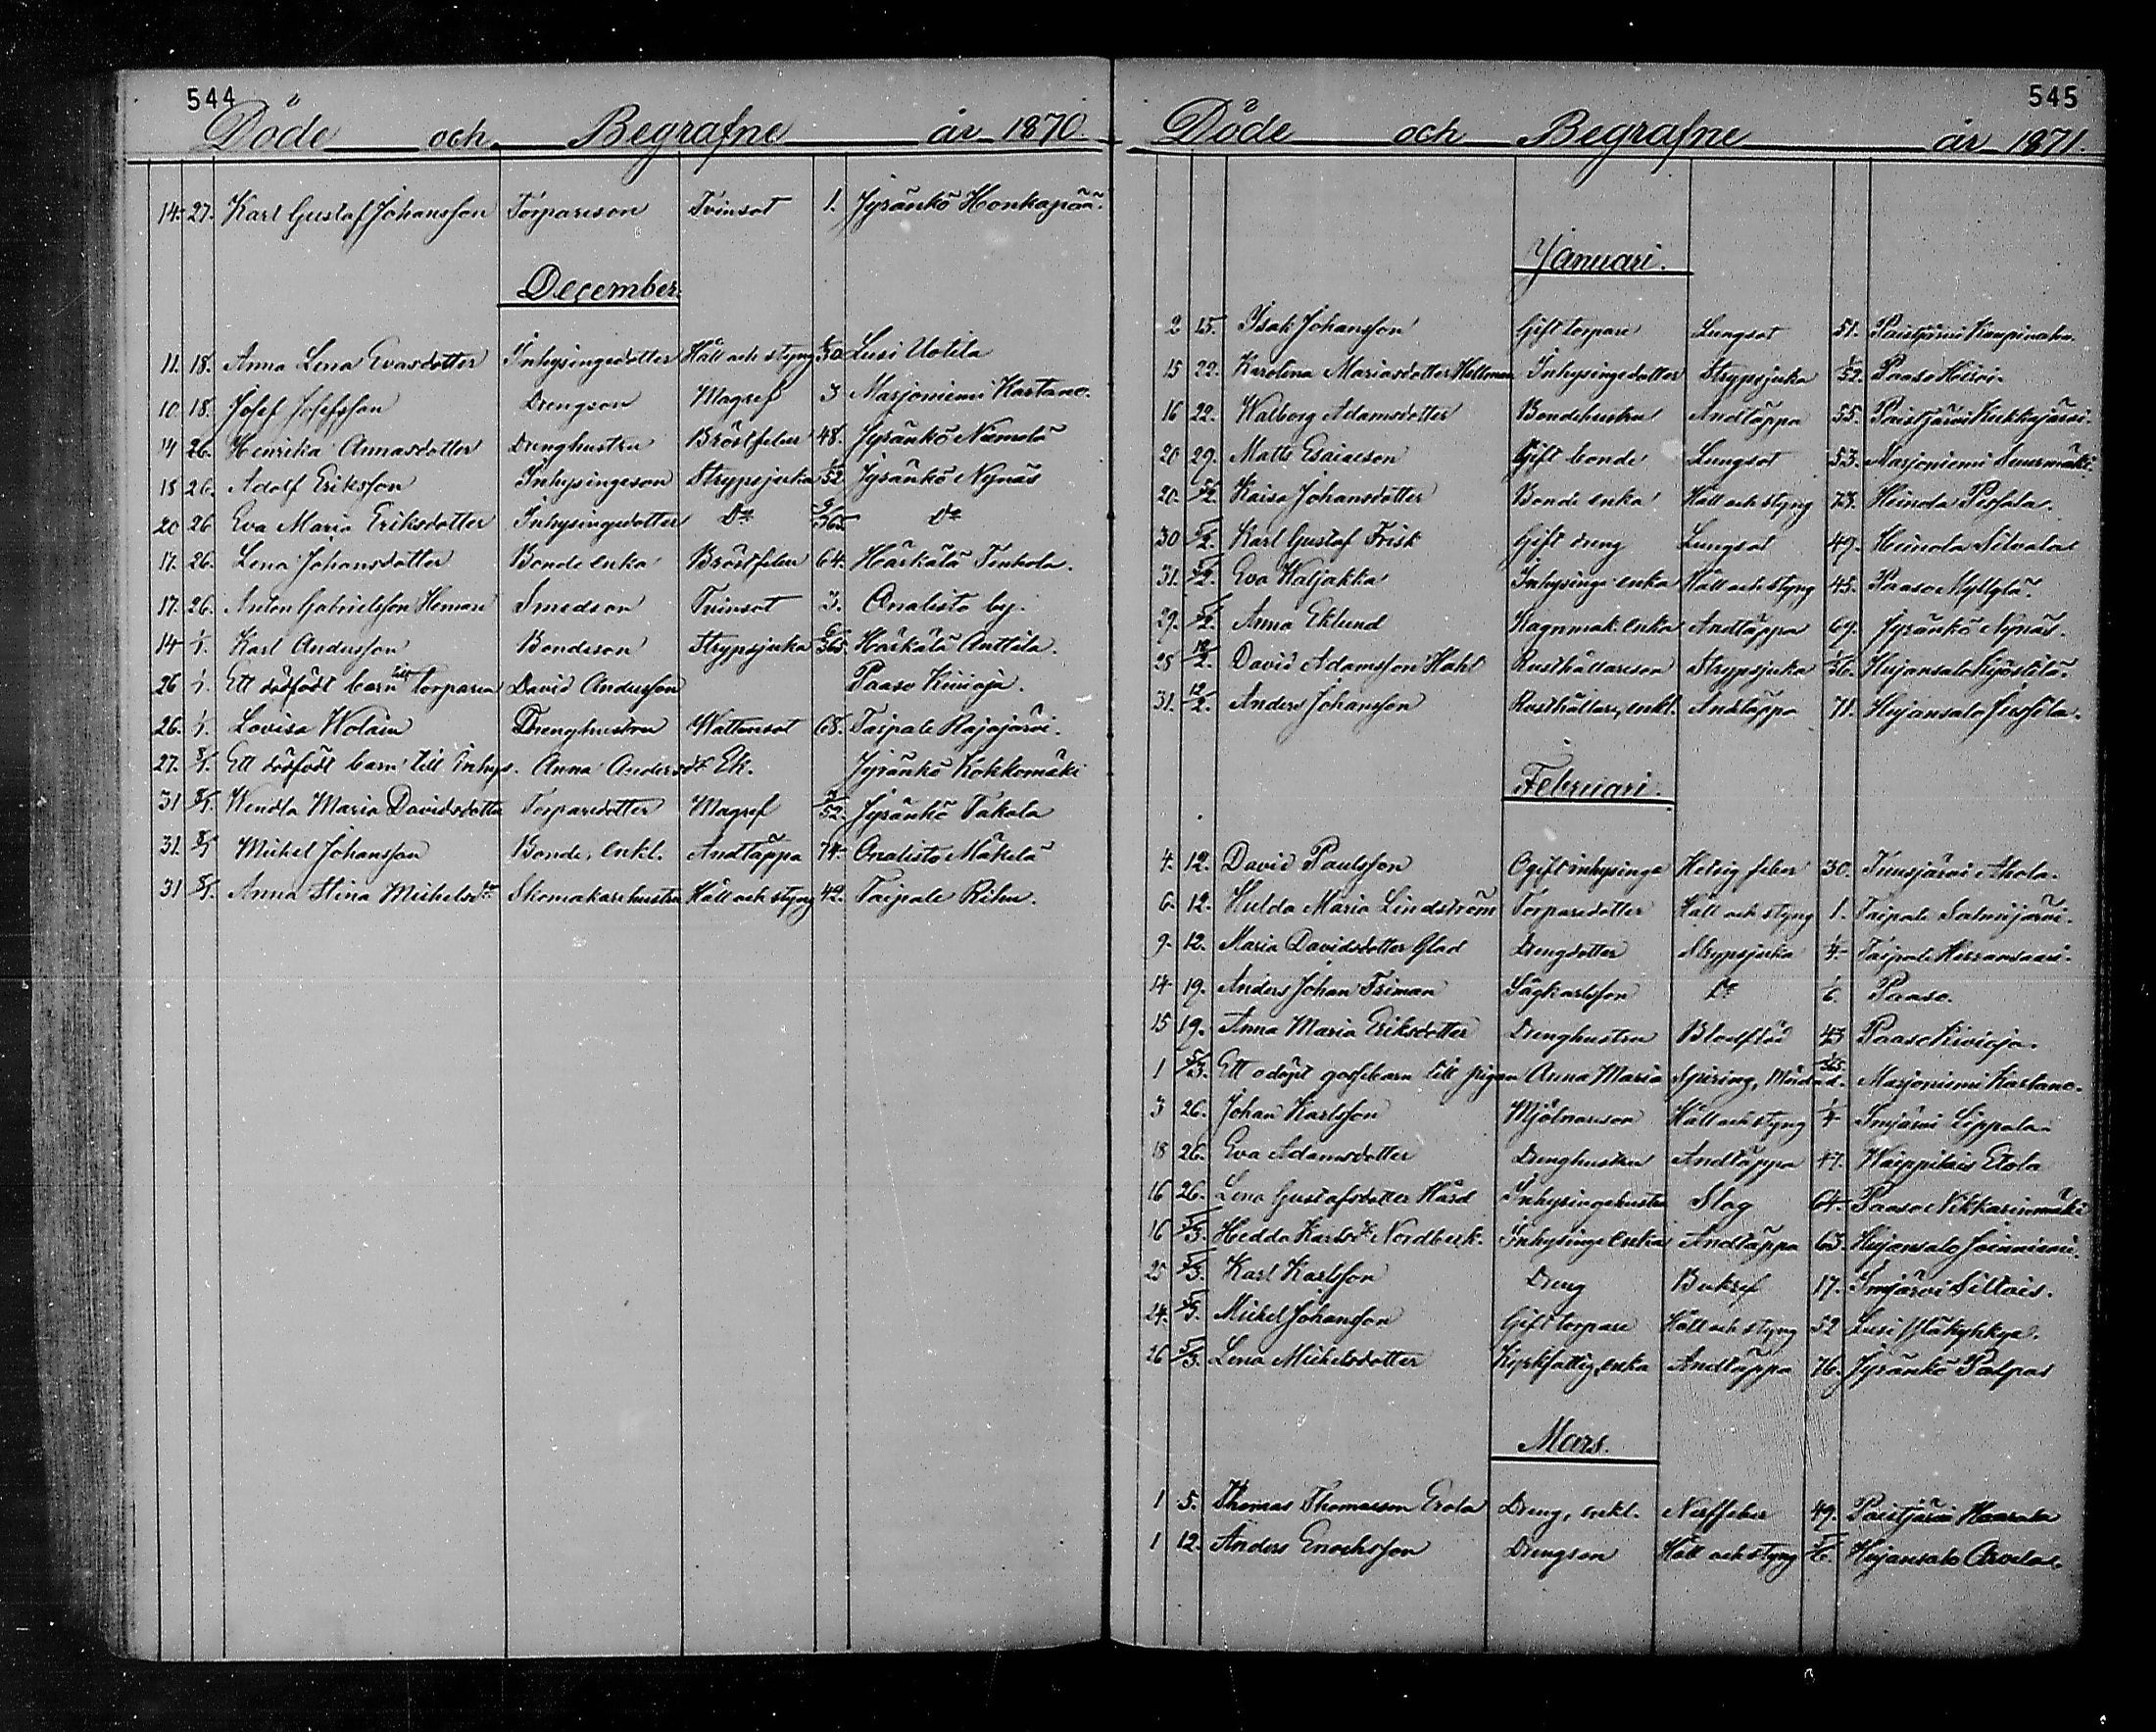 544
Döde och Begrafne år 1870.
14. 27. Karl Gustaf Johansson Torpareson Tvinsot 1. Jyränkö Honkapää.
December.
11. 18. Anna Lena Evasdotter Inhysingedotter Håll och styng Lusi Uotila
10 18. Josef Josefsson Drengson Magref 3 Marjoniemi Kartano.
14 26. Henrika Annasdotter Drenghustru Bröstfeber 48. Jyränkö Niemelä
18 26. Adolf Eriksson Inhysingeson Strypsjuka 1/52 Jyränkö Nynäs
20 26 Eva Maria Eriksdotter Inhysingedotter Do Do
17. 26. Lena Johansdotter Bonde enka Bröstfeber 64. Härkälä Tenhola.
17. 26. Anton Gabrielsson Heman Smedson Tvinsot 3. Onalisto by.
14 1/1. Karl Andersson Bondeson Strypsjuka 6/365. Härkälä Anttila.
26 1/1. Ett dödfödt barn till torparen David Andersson Paaso Kivioja.
26. 1/1. Lovisa Wolain Drenghustru Wattensot 68. Taipale Rajajärvi.
27. 8/1. Ett dödfödt barn till Inhys. Anna Andersdr Ek. Jyränkö Kokkomäki
31 8/1. Wendla Maria Davidsdotter Torparedotter Magref 3/52. Jyränkö Takala
31. 8/1 Mikel Johansson Bonde, enkl. Andtäppa 74. Onalisto Mäkelä
31 8/1. Anna Stina Mickelsdr Skomakarehustru Håll och styng 42. Taipale Rihu.
545
Döde och Begrafne år 1871.
Januari.
2 15. Isak Johansson Gift torpare Lungsot 51. Paistjärvi
15 22. Karolina Mariasdotter Hellman Inhysingedotter Strypsjuka 1/52. Paaso Heivi.
16 22. Walborg Adamsdotter Bondehustru Andtäppa 55. Paistjärvi Kukkojärvi.
20 29. Matts Esaiasson Gift bonde Lungsot 53. Marjoniemi Suurmäki.
20. 5/2. Kaisa Johansdotter Bonde enka Håll och styng 73. Heinola
30 5/2. Karl Gustaf Frisk Gift dreng Lungsot 49. Heinola Silvola
31. 5/2. Eva Waljakka Inhysinge enka Håll och styng 45. Paaso Myllylä.
29. 5/2. Anna Eklund Wagnmak. enka Andtäppa 69. Jyränkö Nynäs.
28 12/2. David Adamsson Hahl Rusthållareson Strypsjuka Hujansalo Kyöstilä.
31. 12/2. Anders Johansson Rusthållare, enkl. Andtäppa 71. Hujansalo Jussila.
Februari.
4. 12. David Paulsson Ogift inhysinge Hetsig feber 30. Ahola.
6. 12. Hulda Maria Lindström Torparedotter Håll och styng 1. Taipale Salmijärvi.
9. 12. Maria Davidsdotter Glad Drengdotter Strypsjuka 1/4. Taipale Hirvansaari.
14 19. Anders Johan Friman Sågkarlsson Do 1/6. Paaso.
15 19. Anna Maria Eriksdotter Drenghustru Blodflöd 43 Paaso Kivioja.
1 5/3. Ett odöpt gossebarn till pigan Anna Maria Spiring, Mördad. 1/365. Marjoniemi Kartano.
3 26. Johan Karlsson Mjölnareson Håll och styng 1/4 Imjärvi Lippola.
18 26. Eva Adamsdotter Drenghustru Andtäppa 47. Waippilais Etola
16 26. Lena Gustafsdotter Hård Inhysingehustru Slag 64. Paaso Nikkarinmäki
16 5/3. Hedda Karlsdr Nordberk. Inhysinge enka Andtäppa 63. Hujansalo Joiniemi.
25 5/3. Karl Karlsson Dreng Bukref 17. Imjärvi Siltois.
24. 5/3. Mickel Johansson Gift torpare Håll och styng 52 Lusi
26 5/3. Lena Mickelsdotter Kyrkfattig, enka Andtäppa 76. Jyränkö Palpas
Mars.
1 5. Thomas Thomasson Erola Dreng, enkl. Nerffeber 49. Paistjärvi Haarala
1 12. Anders Enochsson Drengson Håll och styng Hujansalo Arvela.